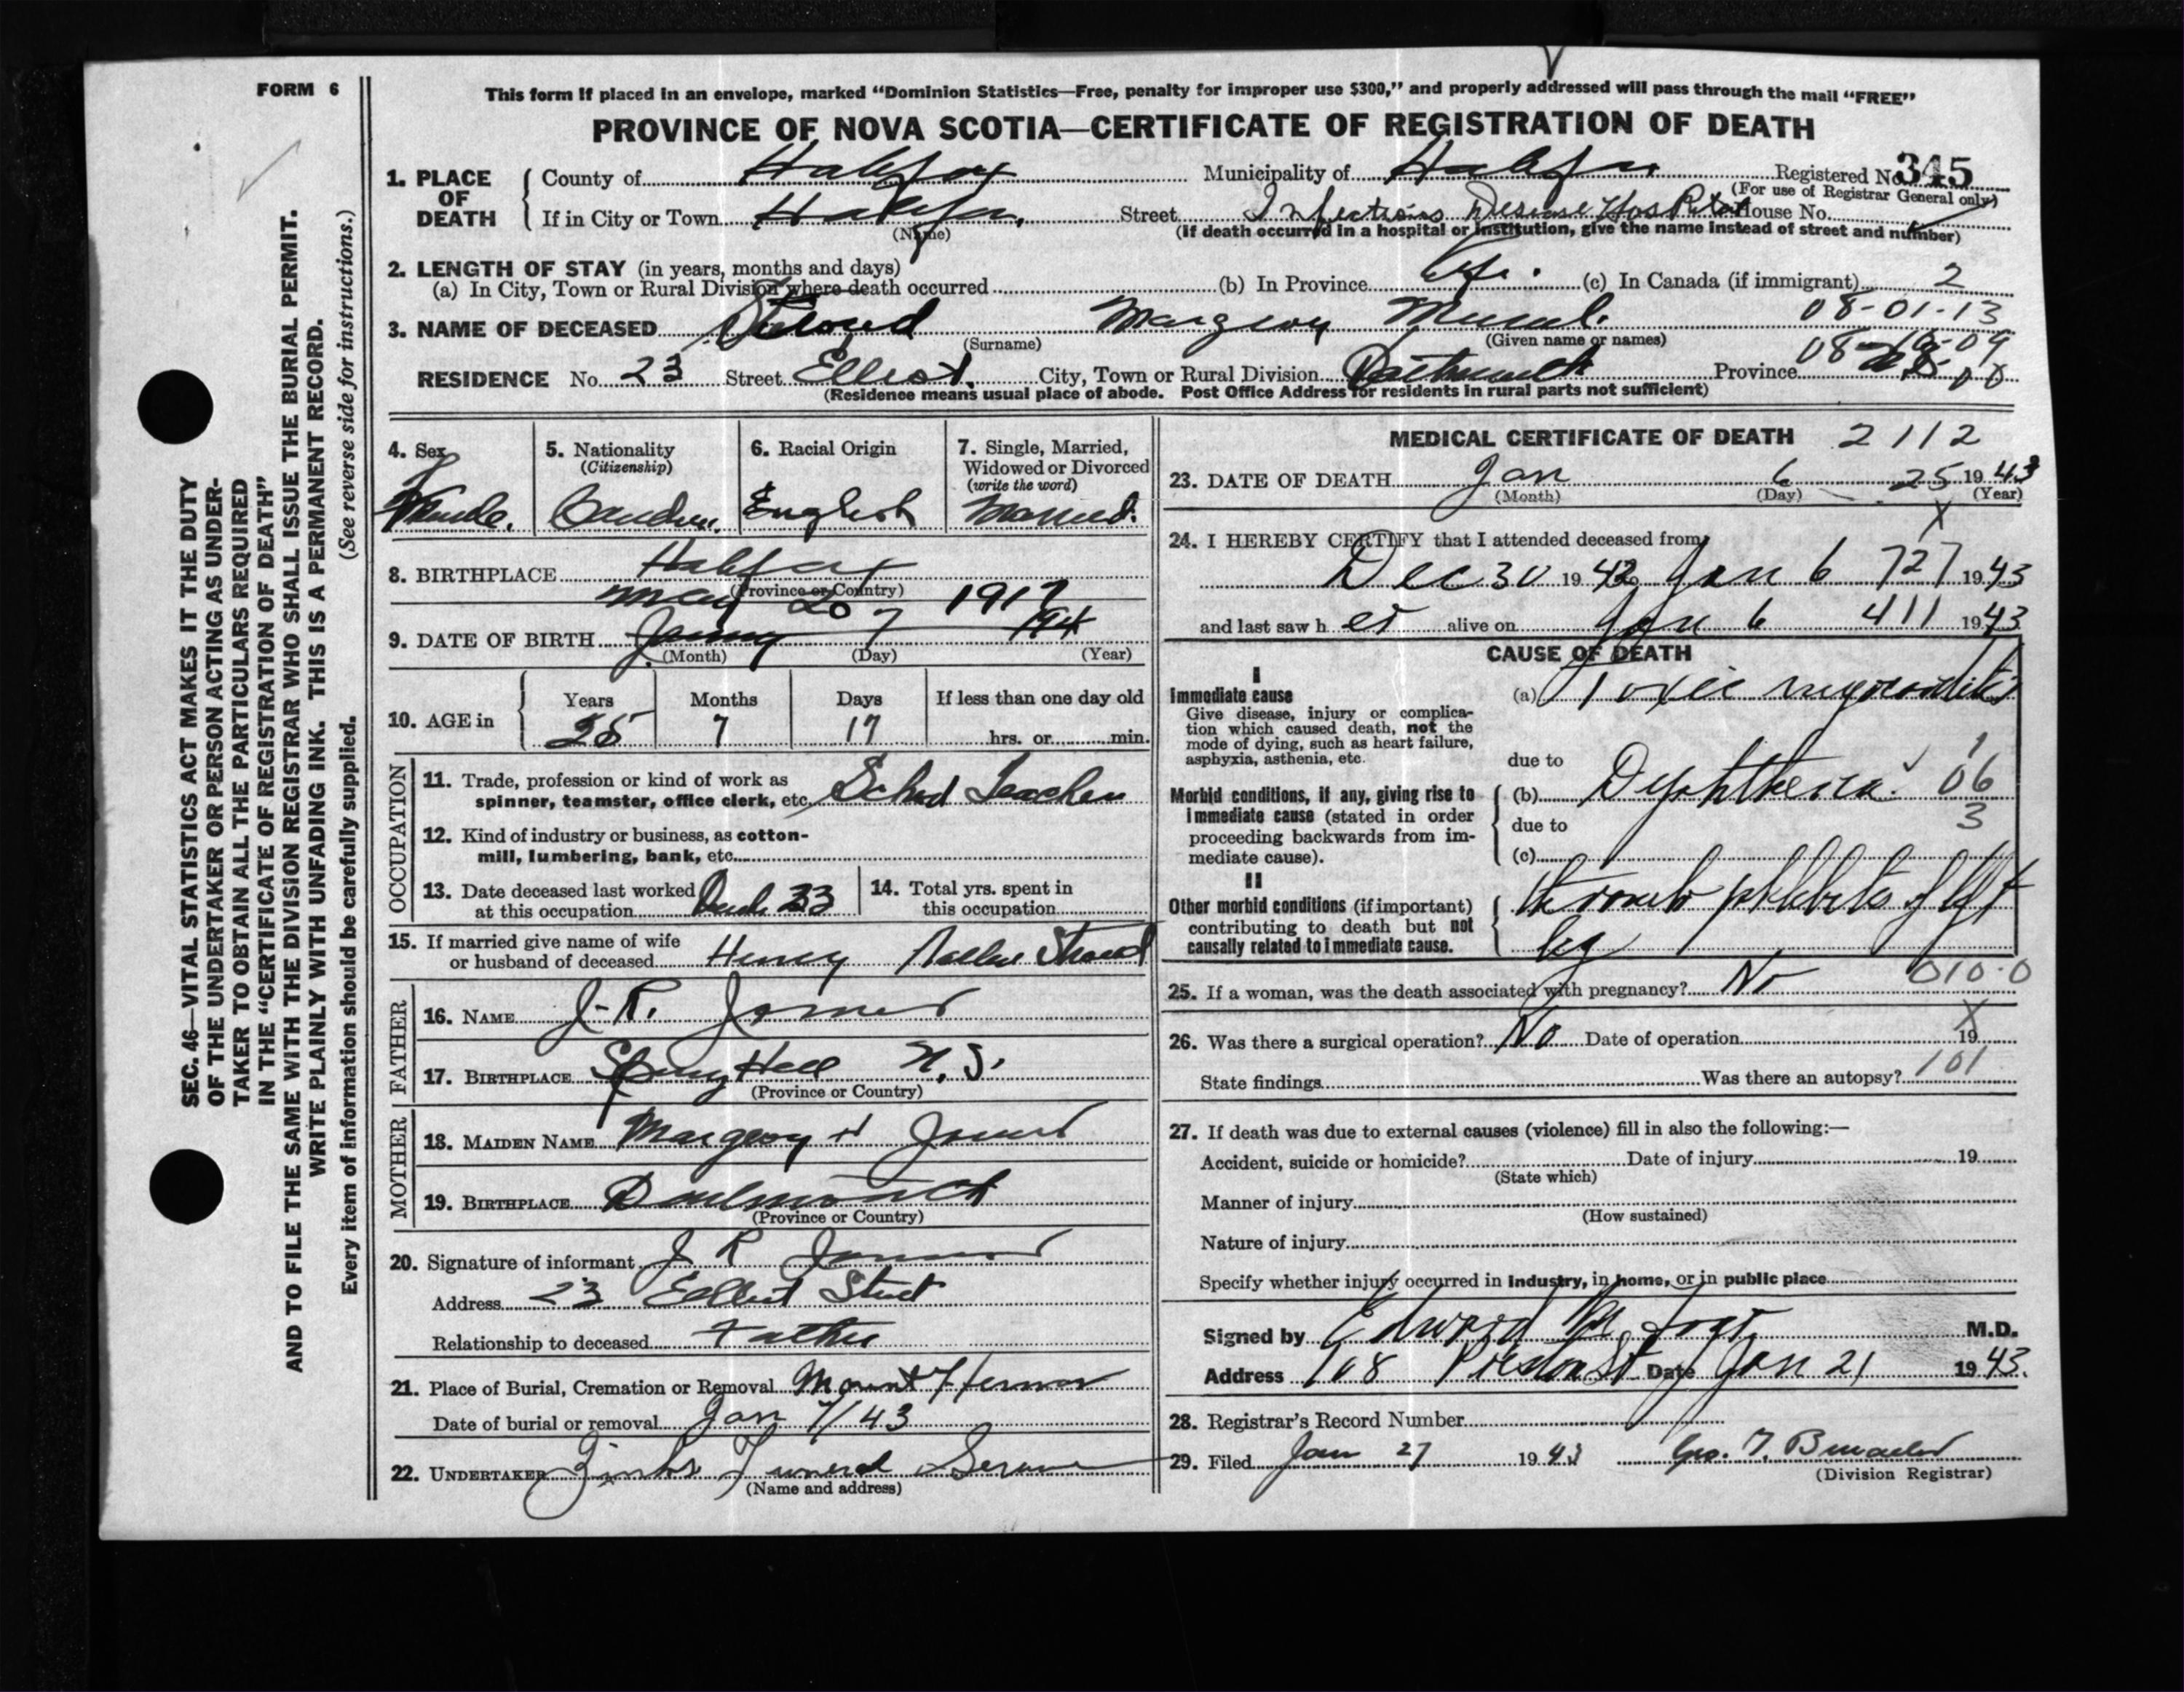 FORM 6
This form if placed in an envelope, marked “Dominion Statistics—Free, penalty for improper use $300,” and properly addressed will pass through the mail “FREE”
PROVINCE OF NOVA SCOTIA—CERTIFICATE OF REGISTRATION OF DEATH
1. PLACE OF DEATH County of Halifax Municipality of Halifax Registered No. 345
(For use of Registrar General only)
If in City or Town Halifax Street Infectious Disease Hospital House No.
(Name) (If death occurred in a hospital or institution, give the name instead of street and number)
2. LENGTH OF STAY (in years, months and days)
(a) In City, Town or Rural Division where death occurred (b) In Province Life. (c) In Canada (if immigrant) 2
08-01-13
3. NAME OF DECEASED Margery
(Surname) (Given name or names)
RESIDENCE No. 23 Street Elliot. City, Town or Rural Division Dartmouth Province N.S.
(Residence means usual place of abode. Post Office Address for residents in rural parts not sufficient)
4. Sex Female.
5. Nationality (Citizenship)
6. Racial Origin English
7. Single, Married, Widowed or Divorced (write the word) Married.
8. BIRTHPLACE Halifax
(Province or Country)
May 20 1917
9. DATE OF BIRTH 7
(Month) (Day) (Year)
10. AGE in Years 25 Months 7 Days 17 If less than one day old hrs. or min.
OCCUPATION
11. Trade, profession or kind of work as spinner, teamster, office clerk, etc. School Teacher
12. Kind of industry or business, as cotton-mill, lumbering, bank, etc.
13. Date deceased last worked at this occupation
14. Total yrs. spent in this occupation
15. If married give name of wife or husband of deceased Henry
FATHER
16. NAME J. R.
17. BIRTHPLACE N.S.
(Province or Country)
MOTHER
18. MAIDEN NAME Margery
19. BIRTHPLACE Dartmouth
(Province or Country)
20. Signature of informant J R
Address 23 Elliot Street
Relationship to deceased Father
21. Place of Burial, Cremation or Removal Mount Hermon
Date of burial or removal Jan 7/43
22. UNDERTAKER Funeral Service
(Name and address)
MEDICAL CERTIFICATE OF DEATH 2112
23. DATE OF DEATH Jan 6 25 1943
(Month) (Day) (Year)
X
24. I HEREBY CERTIFY that I attended deceased from
Dec 30 1942 Jan 6 727 1943
and last saw h er alive on Jan 6 411 1943
CAUSE OF DEATH
I
Immediate cause
Give disease, injury or complication which caused death, not the mode of dying, such as heart failure, asphyxia, asthenia, etc.
(a) Toxic myocarditis
due to 1
Morbid conditions, if any, giving rise to immediate cause (stated in order proceeding backwards from immediate cause).
(b) Dyphtheria. 06
due to 3
(c)
II
Other morbid conditions (if important) contributing to death but not causally related to immediate cause.
thrombo phlebitis of left
leg
25. If a woman, was the death associated with pregnancy? No 010·0
X
26. Was there a surgical operation? No Date of operation 19
State findings Was there an autopsy? 101
27. If death was due to external causes (violence) fill in also the following:—
Accident, suicide or homicide? Date of injury 19
(State which)
Manner of injury
(How sustained)
Nature of injury
Specify whether injury occurred in industry, in home, or in public place
Signed by Edward M. M.D.
Address 108 Preston St Date Jan 21 1943.
28. Registrar's Record Number
29. Filed Jan 27 1943 Geo. T.
(Division Registrar)
SEC. 46—VITAL STATISTICS ACT MAKES IT THE DUTY
OF THE UNDERTAKER OR PERSON ACTING AS UNDER-
TAKER TO OBTAIN ALL THE PARTICULARS REQUIRED
IN THE “CERTIFICATE OF REGISTRATION OF DEATH”
AND TO FILE THE SAME WITH THE DIVISION REGISTRAR WHO SHALL ISSUE THE BURIAL PERMIT.
WRITE PLAINLY WITH UNFADING INK. THIS IS A PERMANENT RECORD.
Every item of information should be carefully supplied. (See reverse side for instructions.)